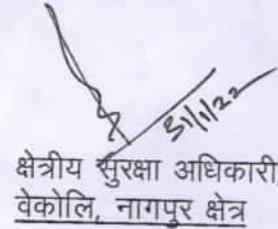 31/1/22
क्षेत्रीय सुरक्षा अधिकारी
वेकोलि, नागपुर क्षेत्र